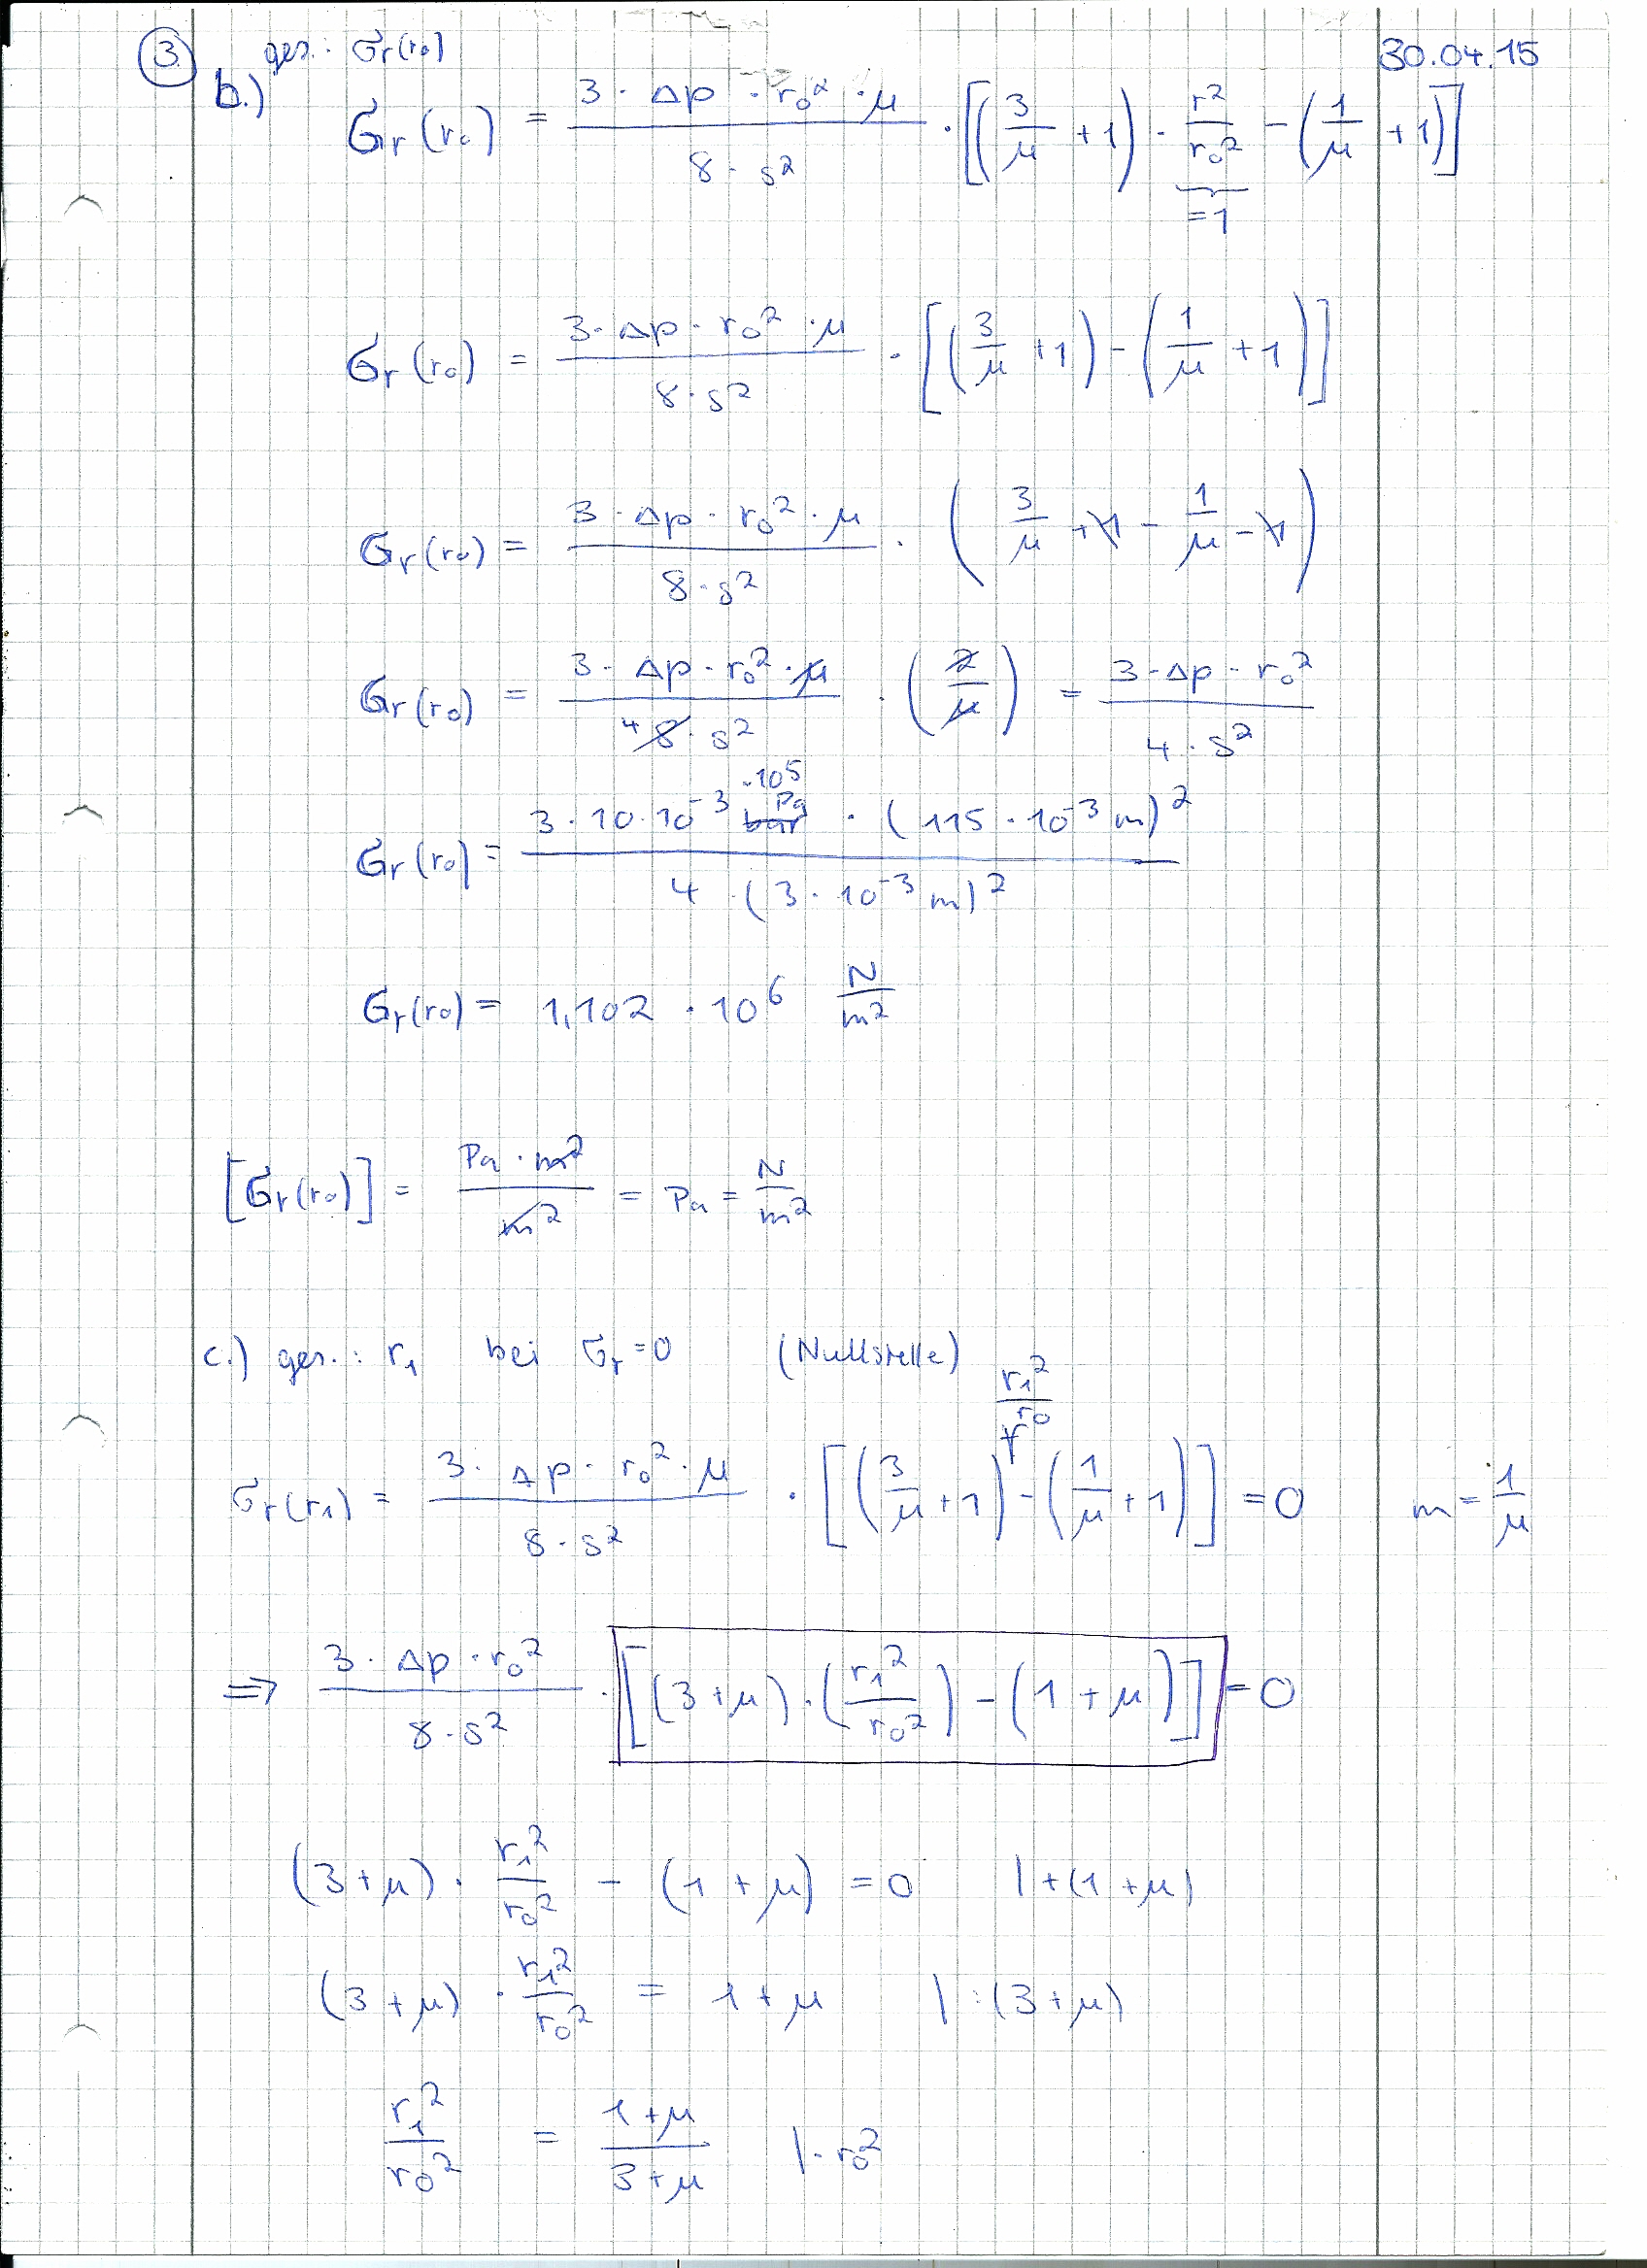 ③ ges.: σr(r₀) 30.04.15
b.) σr(r₀) = (3 · Δp · r₀² · μ)/(8 · s²) · [(3/μ + 1) · r²/r₀² − (1/μ + 1)]
=1
σr(r₀) = (3 · Δp · r₀² · μ)/(8 · s²) · [(3/μ + 1) − (1/μ + 1)]
σr(r₀) = (3 · Δp · r₀² · μ)/(8 · s²) · (3/μ + 1 − 1/μ − 1)
σr(r₀) = (3 · Δp · r₀² · μ)/(4 8 · s²) · (2/μ) = (3 · Δp · r₀²)/(4 · s²)
σr(r₀) = (3 · 10 · 10⁻³ bar ·10⁵ Pa · (115 · 10⁻³ m)²)/(4 (3 · 10⁻³ m)²)
σr(r₀) = 1,102 · 10⁶ N/m²
[σr(r₀)] = (Pa · m²)/m² = Pa = N/m²
c.) ges.: r₁ bei σr = 0 (Nullstelle)
r₁²/r₀
σr(r₁) = (3 · Δp · r₀² · μ)/(8 · s²) · [(3/μ + 1) − (1/μ + 1)] = 0 m = 1/μ
⇒ (3 · Δp · r₀²)/(8 · s²) · [(3 + μ) · (r₁²/r₀²) − (1 + μ)] = 0
(3 + μ) · r₁²/r₀² − (1 + μ) = 0 | +(1 + μ)
(3 + μ) · r₁²/r₀² = 1 + μ | :(3 + μ)
r₁²/r₀² = (1 + μ)/(3 + μ) | · r₀²